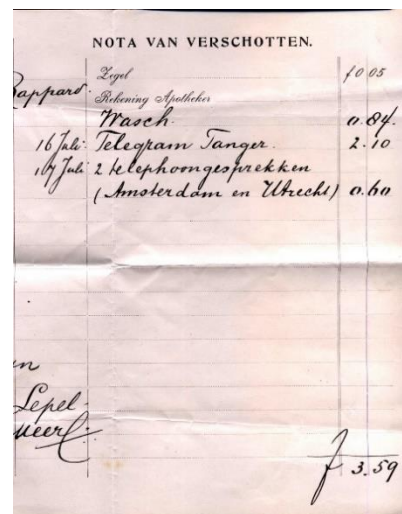 NOTA VAN VERSCHOTTEN.
Zegel f 0 05
Rappard.
Rekening Apotheker
Wasch. 0.84.
16 Juli. Telegram Tanger. 2.10
17 Juli 2 telephoongesprekken
(Amsterdam en Utrecht) 0.60
en
Lepel-
meer
f 3.59